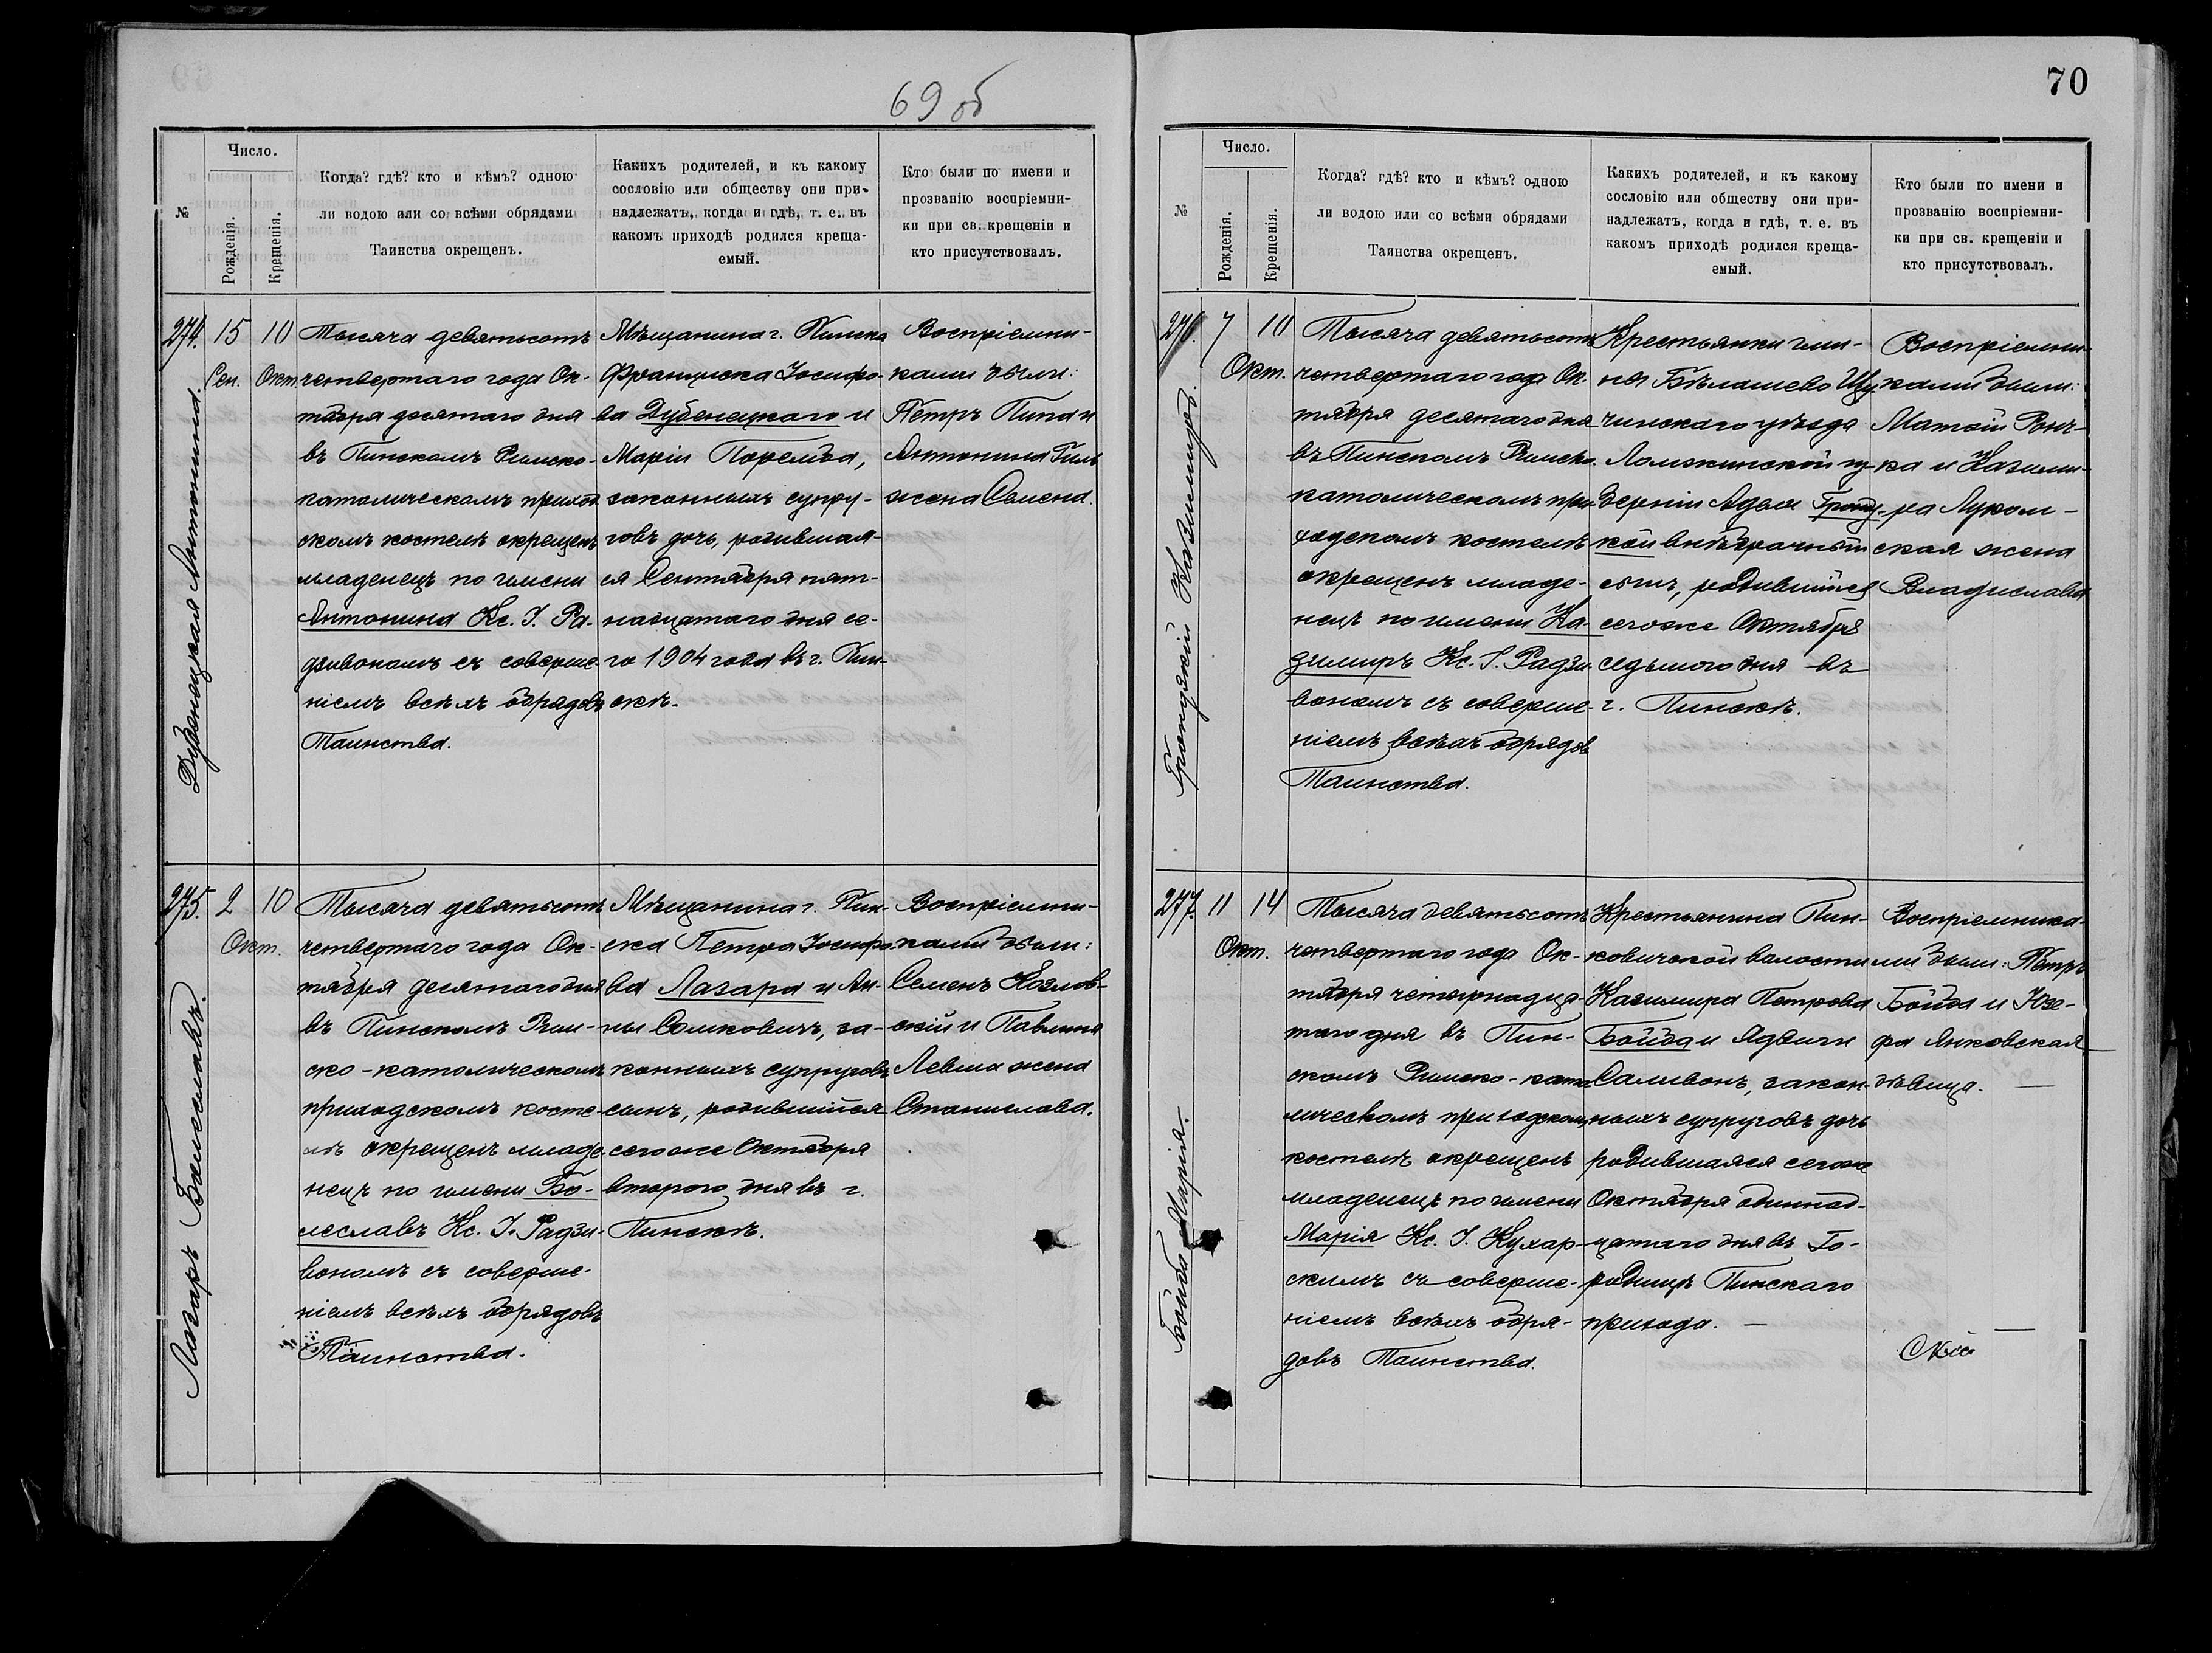 69 об
№
Число.
Рожденія.
Крещенія.
Когда? гдѣ? кто и кѣмъ? одною
ли водою или со всѣми обрядами
Таинства окрещенъ.
Какихъ родителей, и къ какому
сословію или обществу они при-
надлежатъ, когда и гдѣ, т. е. въ
какомъ приходѣ родился креща-
емый.
Кто были по имени и
прозванію воспріемни-
ки при св. крещеніи и
кто присутствовалъ.
274.
Дубенецкая Антонина.
15
Сен.
10
Окт.
Тысяча девятьсотъ
четвертаго года Ок-
тября десятаго дня
въ Пинскомъ Римско-
католическомъ приход-
скомъ костелѣ окрещенъ
младенецъ по имени
Антонина Кс. І. Ра-
дзивономъ съ соверше-
ніемъ всѣхъ обрядовъ
Таинства.
Мѣщанина г. Пинска
Франциска Іосифо-
ва Дубенецкаго и
Маріи Поремба,
законныхъ супру-
говъ дочь, родившая-
ся Сентября пят-
надцатаго дня се-
го 1904 года въ г. Пин-
скѣ.
Воспріемни-
ками были:
Петръ Пипа и
Антонина Гиль
жена Семена.
275.
Лазаръ Болеславъ.
2
10
Окт.
Тысяча девятьсотъ
четвертаго года Ок-
тября десятаго дня
въ Пинскомъ Рим-
ско-католическомъ
приходскомъ косте-
лѣ окрещенъ младе-
нецъ по имени Бо-
леславъ Кс. І. Радзи-
вономъ съ соверше-
ніемъ всѣхъ обрядовъ
Таинства.
Мѣщанина г. Пин-
ска Петра Іосифо-
ва Лазара и Ан-
ны Самковичъ, за-
конныхъ супруговъ
сынъ, родившійся
сего же Октября
второго дня въ г.
Пинскѣ.
Воспріемни-
ками были:
Семенъ Козлов-
скій и Павлина
Левша жена
Станислава.
70
№
Число.
Рожденія.
Крещенія.
Когда? гдѣ? кто и кѣмъ? одною
ли водою или со всѣми обрядами
Таинства окрещенъ.
Какихъ родителей, и къ какому
сословію или обществу они при-
надлежатъ, когда и гдѣ, т. е. въ
какомъ приходѣ родился креща-
емый.
Кто были по имени и
прозванію воспріемни-
ки при св. крещеніи и
кто присутствовалъ.
276.
Казимиръ.
7
10
Окт.
Тысяча девятьсотъ
четвертаго года Ок-
тября десятаго дня
въ Пинскомъ Римско-
католическомъ при-
ходскомъ костелѣ
окрещенъ младе-
нецъ по имени Ка-
зимиръ Кс. І. Радзи-
вономъ съ соверше-
ніемъ всѣхъ обрядовъ
Таинства.
Крестьянки гми-
ны Бѣлашево Щу-
чинскаго уѣзда
Ломжинской гу-
берніи Адели
кой внѣбрачный
сынъ, родившійся
сего же Октября
седьмого дня въ
г. Пинскѣ.
Воспріемни-
ками были:
Матвій
ка и Казими-
ра Луком-
ская жена
Владислава
277.
Бойба Марія.
11
14
Окт.
Тысяча девятьсотъ
четвертаго года Ок-
тября четырнадца-
таго дня въ Пин-
скомъ Римско-като-
лическомъ приходскомъ
костелѣ окрещенъ
младенецъ по имени
Марія Кс. І. Кухар-
скимъ съ соверше-
ніемъ всѣхъ обря-
довъ Таинства.
Крестьянина Пин-
ковичской волости
Казимира Петрова
Бойба и Ядвиги
Саливонъ, закон-
ныхъ супруговъ дочь
родившаяся сего же
Октября одиннад-
цатаго дня въ Го-
родищѣ Пинскаго
прихода. —
Воспріемника-
ми были: Петръ
Бойба и Юзе-
фа Янковская
дѣвица. —